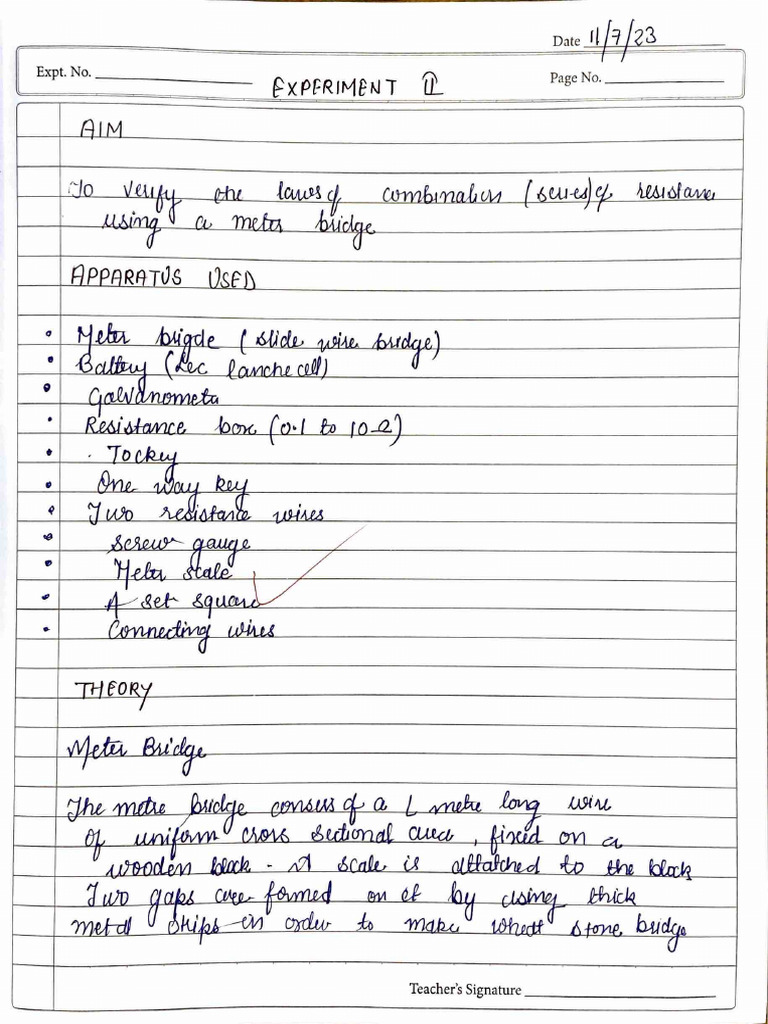 Date 11/7/23
Expt. No.
EXPERIMENT II
Page No.
AIM
To verify the laws of combination (series) of resistance
using a meter bridge
APPARATUS USED
• Meter brigde (slide wire bridge)
• Battery (Lec lanche cell)
• Galvanometer
• Resistance box (0.1 to 10 Ω)
• Jockey
• One way key
• Two resistance wires
• Screw gauge
• Meter scale
• A set square
• Connecting wires
THEORY
Meter Bridge
The metre bridge consers of a 1 metre long wire
of uniform cross sectional area, fixed on a
wooden block. A scale is attatched to the block
Two gaps are formed on it by using thick
metal strips in order to make wheat stone bridge
Teacher's Signature